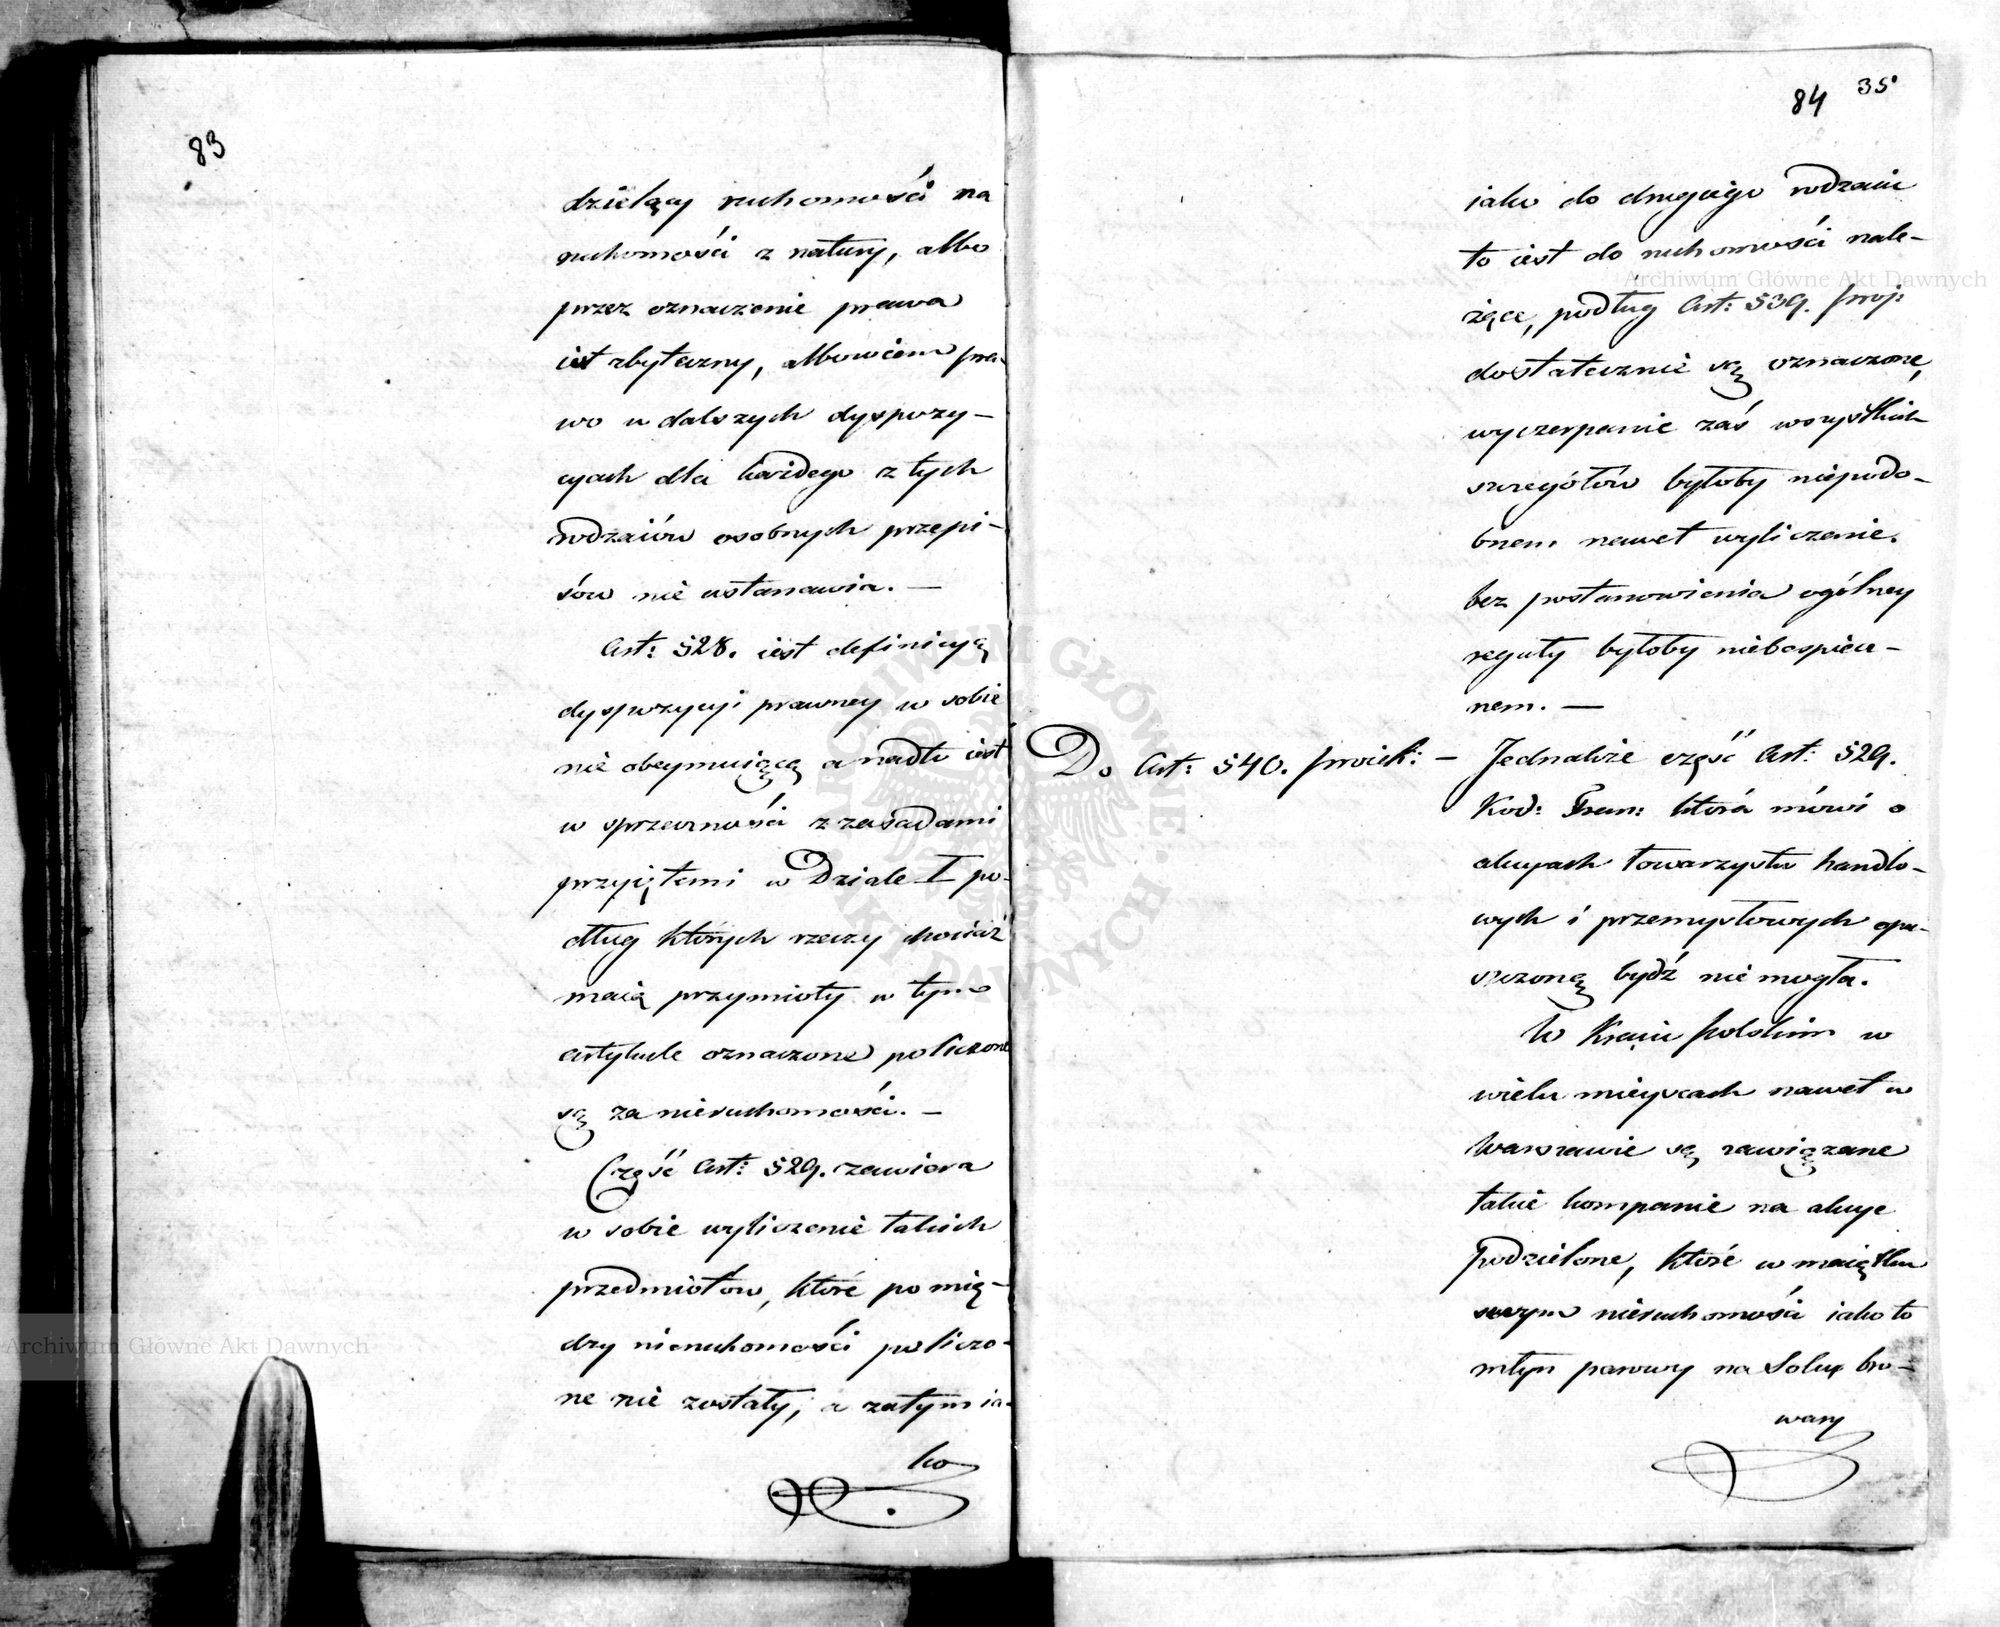 83
dzielący ruchomości na
ruchomości z natury, albo
przez oznaczenie prawa
iest zbyteczny, albowiem pra-
wo w dalszych dyspozy-
cyach dla każdego z tych
rodzaiów osobnych przepi-
sów nie ustanawia. —
Art: 528. iest definicyą
dyspozycyi prawney w sobie
nie obeymuiącą a nadto iest
w sprzeczności z zasadami
przyiętemi w Dziale I po-
dług których rzeczy chociaż
maią przymioty w tym
artykule oznaczone policzone
są za nieruchomości. —
Część Art: 529. zawiera
w sobie wyliczenie takich
przedmiotów, które pomię-
dzy nieruchomości policzo-
ne nie zostały, a zatym ia-
ko
84 35
iako do drugiego rodzaiu
to iest do ruchomości nale-
żące, podług Art: 539. proj:
dostatecznie są oznaczone,
wyczerpanie zaś wszystkich
szczegółów byłoby niepodo-
bnem nawet wyliczenie.
bez postanowienia ogólney
reguły byłoby niebespiecz-
nem. —
Do Art: 540. proiek: — Jednakże część Art: 529.
Kod: Fran: która mówi o
akcyach towarzystw handlo-
wych i przemysłowych opu-
szczoną bydź nie mogła.
W Kraiu polskim w
wielu mieyscach nawet w
Warszawie są zawiązane
takie kompanie na akcye
podzielone, które w maiątku
swym nieruchomości iako to
młyn parowy na Solcu bro-
wary
Archiwum Główne Akt Dawnych
Archiwum Główne Akt Dawnych
ARCHIWUM GŁÓWNE AKT DAWNYCH